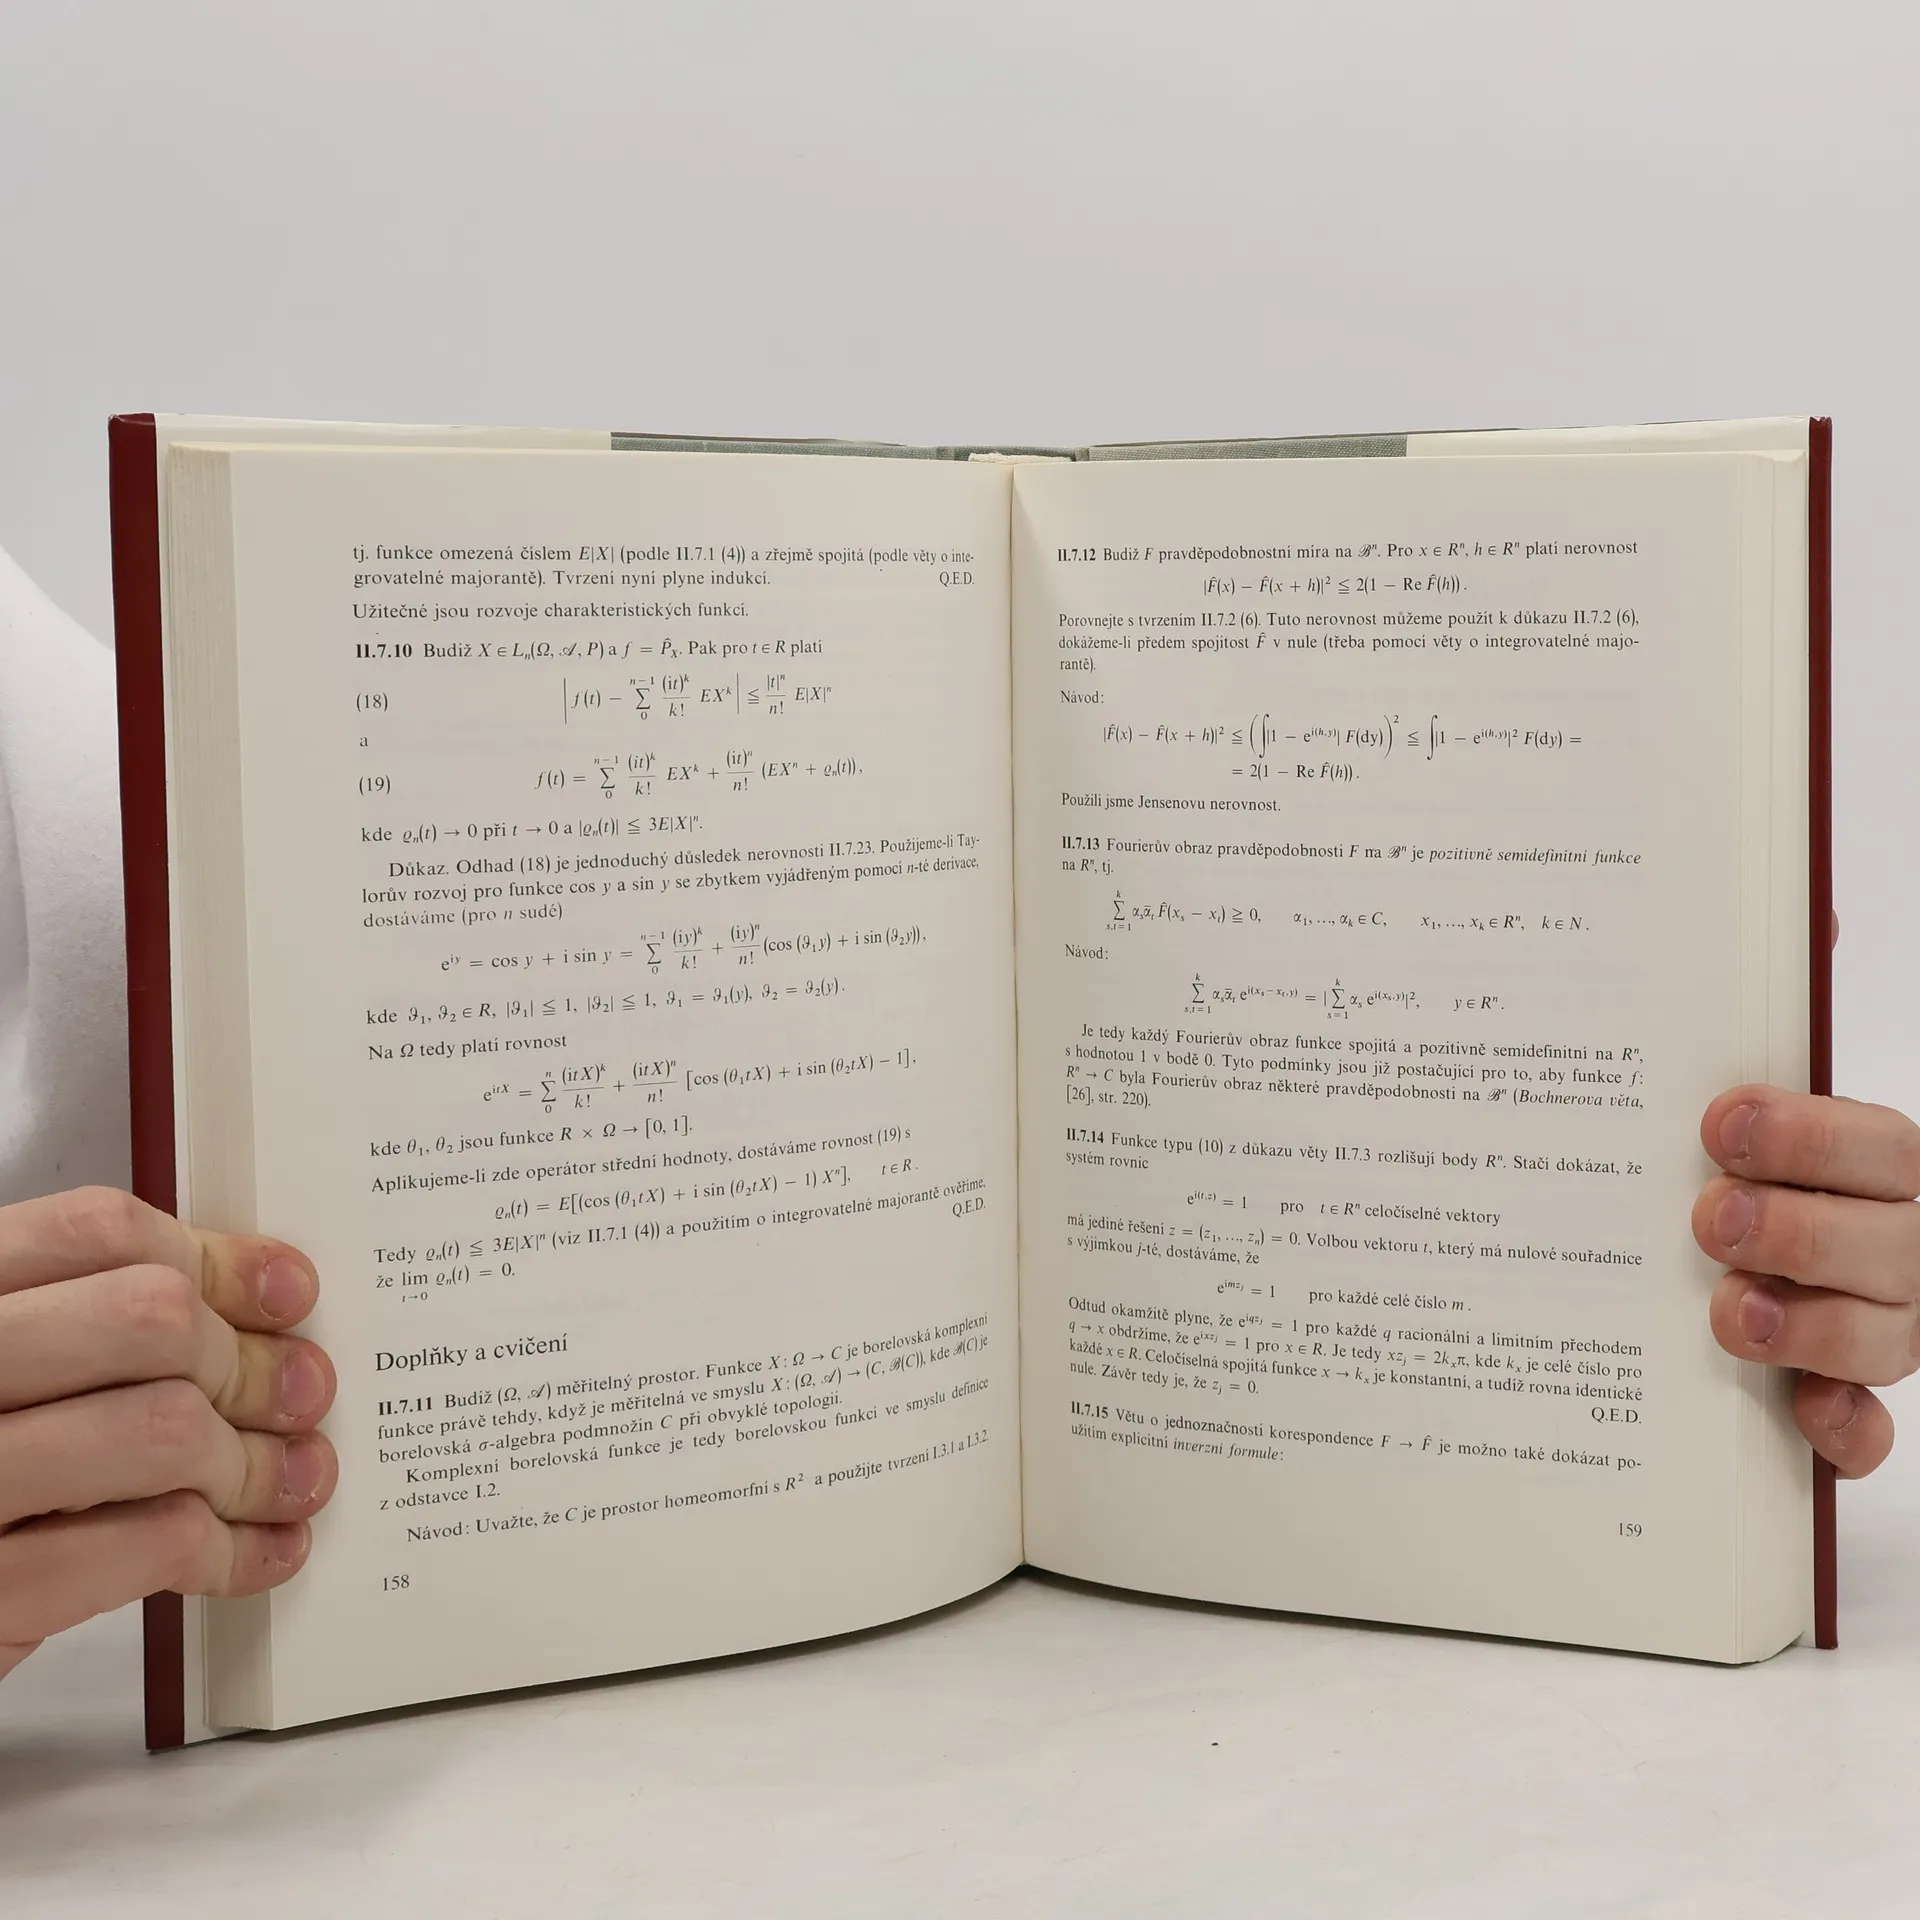 tj. funkce omezená číslem E|X| (podle II.7.1 (4)) a zřejmě spojitá (podle věty o inte-
grovatelné majorantě). Tvrzení nyní plyne indukcí. Q.E.D.
Užitečné jsou rozvoje charakteristických funkcí.
II.7.10 Budiž X ∈ Lₙ(Ω, 𝒜, P) a f = P̂_X. Pak pro t ∈ R platí
(18) |f(t) − ∑₀ⁿ⁻¹ (it)ᵏ/k! EXᵏ| ≦ |t|ⁿ/n! E|X|ⁿ
a
(19) f(t) = ∑₀ⁿ⁻¹ (it)ᵏ/k! EXᵏ + (it)ⁿ/n! (EXⁿ + ϱₙ(t)),
kde ϱₙ(t) → 0 při t → 0 a |ϱₙ(t)| ≦ 3E|X|ⁿ.
Důkaz. Odhad (18) je jednoduchý důsledek nerovnosti II.7.23. Použijeme-li Tay-
lorův rozvoj pro funkce cos y a sin y se zbytkem vyjádřeným pomocí n-té derivace,
dostáváme (pro n sudé)
eⁱʸ = cos y + i sin y = ∑₀ⁿ⁻¹ (iy)ᵏ/k! + (iy)ⁿ/n! (cos (ϑ₁y) + i sin (ϑ₂y)),
kde ϑ₁, ϑ₂ ∈ R, |ϑ₁| ≦ 1, |ϑ₂| ≦ 1, ϑ₁ = ϑ₁(y), ϑ₂ = ϑ₂(y).
Na Ω tedy platí rovnost
e^{itX} = ∑₀ⁿ (itX)ᵏ/k! + (itX)ⁿ/n! [cos (θ₁tX) + i sin (θ₂tX) − 1],
kde θ₁, θ₂ jsou funkce R × Ω → [0, 1].
Aplikujeme-li zde operátor střední hodnoty, dostáváme rovnost (19) s
ϱₙ(t) = E[(cos (θ₁tX) + i sin (θ₂tX) − 1) Xⁿ], t ∈ R.
Tedy ϱₙ(t) ≦ 3E|X|ⁿ (viz II.7.1 (4)) a použitím o integrovatelné majorantě ověříme,
že lim_{t→0} ϱₙ(t) = 0. Q.E.D.
Doplňky a cvičení
II.7.11 Budiž (Ω, 𝒜) měřitelný prostor. Funkce X: Ω → C je borelovská komplexní
funkce právě tehdy, když je měřitelná ve smyslu X: (Ω, 𝒜) → (C, ℬ(C)), kde ℬ(C) je
borelovská σ-algebra podmnožin C při obvyklé topologii.
Komplexní borelovská funkce je tedy borelovskou funkcí ve smyslu definice
z odstavce I.2.
Návod: Uvažte, že C je prostor homeomorfní s R² a použijte tvrzení I.3.1 a I.3.2.
158
II.7.12 Budiž F pravděpodobnostní míra na ℬⁿ. Pro x ∈ Rⁿ, h ∈ Rⁿ platí nerovnost
|F̂(x) − F̂(x + h)|² ≦ 2(1 − Re F̂(h)).
Porovnejte s tvrzením II.7.2 (6). Tuto nerovnost můžeme použít k důkazu II.7.2 (6),
dokážeme-li předem spojitost F̂ v nule (třeba pomocí věty o integrovatelné majo-
rantě).
Návod:
|F̂(x) − F̂(x + h)|² ≦ (∫|1 − e^{i(h,y)}| F(dy))² ≦ ∫|1 − e^{i(h,y)}|² F(dy) =
= 2(1 − Re F̂(h)).
Použili jsme Jensenovu nerovnost.
II.7.13 Fourierův obraz pravděpodobnosti F na ℬⁿ je pozitivně semidefinitní funkce
na Rⁿ, tj.
∑_{s,t=1}^{k} αₛᾱₜ F̂(xₛ − xₜ) ≧ 0, α₁, ..., αₖ ∈ C, x₁, ..., xₖ ∈ Rⁿ, k ∈ N.
Návod:
∑_{s,t=1}^{k} αₛᾱₜ e^{i(xₛ−xₜ,y)} = |∑_{s=1}^{k} αₛ e^{i(xₛ,y)}|², y ∈ Rⁿ.
Je tedy každý Fourierův obraz funkce spojitá a pozitivně semidefinitní na Rⁿ,
s hodnotou 1 v bodě 0. Tyto podmínky jsou již postačující pro to, aby funkce f:
Rⁿ → C byla Fourierův obraz některé pravděpodobnosti na ℬⁿ (Bochnerova věta,
[26], str. 220).
II.7.14 Funkce typu (10) z důkazu věty II.7.3 rozlišují body Rⁿ. Stačí dokázat, že
systém rovnic
e^{i(t,z)} = 1 pro t ∈ Rⁿ celočíselné vektory
má jediné řešení z = (z₁, ..., zₙ) = 0. Volbou vektoru t, který má nulové souřadnice
s výjimkou j-té, dostáváme, že
e^{imzⱼ} = 1 pro každé celé číslo m.
Odtud okamžitě plyne, že e^{iqzⱼ} = 1 pro každé q racionální a limitním přechodem
q → x obdržíme, že e^{ixzⱼ} = 1 pro x ∈ R. Je tedy xzⱼ = 2kₓπ, kde kₓ je celé číslo pro
každé x ∈ R. Celočíselná spojitá funkce x → kₓ je konstantní, a tudíž rovna identické
nule. Závěr tedy je, že zⱼ = 0. Q.E.D.
II.7.15 Větu o jednoznačnosti korespondence F → F̂ je možno také dokázat po-
užitím explicitní inverzní formule:
159